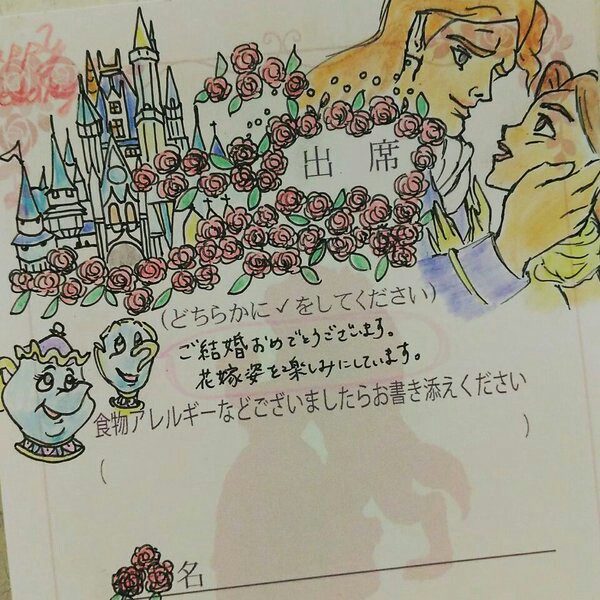 出席
(どちらかに✓をしてください)
ご結婚おめでとうございます。
花嫁姿を楽しみにしています。
食物アレルギーなどございましたらお書き添えください
(                    )
名